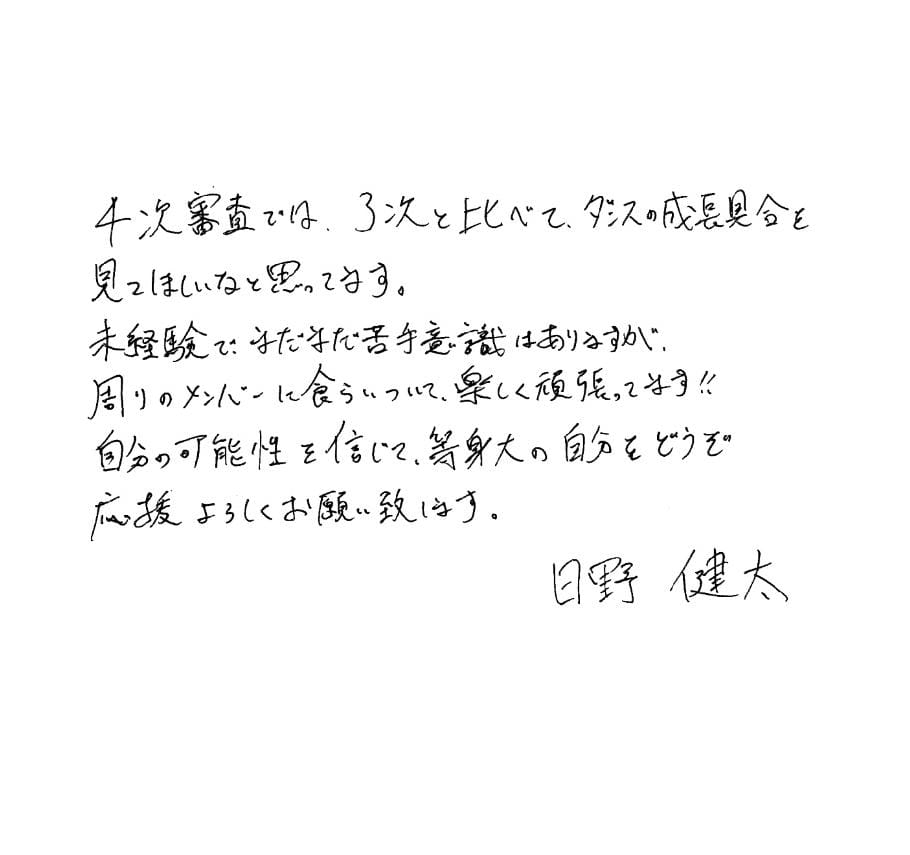 4次審査では、3次と比べて、ダンスの成長具合を
見てほしいなと思ってます。
未経験で、まだまだ苦手意識はありますが、
周りのメンバーに食らいついて、楽しく頑張ってます!!
自分の可能性を信じて、等身大の自分をどうぞ
応援よろしくお願い致します。
日野 健太